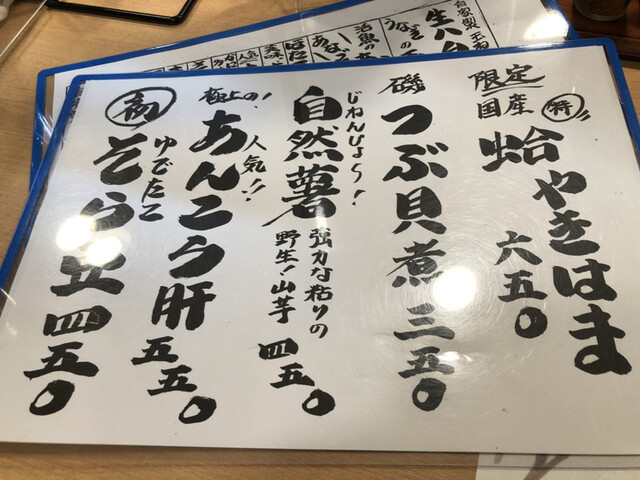 限定
国産
特
蛤やきはま
六五〇
磯
つぶ貝煮 三五〇
じねんじょ〜!
自然薯
強力な粘りの
野生!山芋 四五〇
極上の!
人気!!
あんこう肝 五五〇
初
ゆでたて
そら豆 四五〇
自家製
生ハム
うなぎの
活魚の
あなご